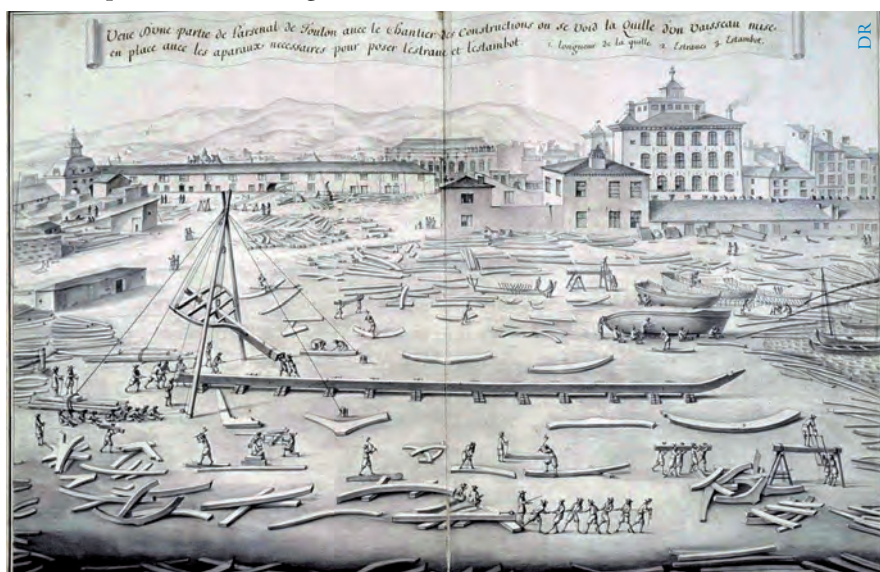 Veue d'une partie de l'arsenal de Toulon avec le chantier des constructions ou se void la Quille d'un Vaisseau mise
en place avec les aparaux necessaires pour poser lestrave et lestambot. 1. longueur de la quille 2. Estrave 3. Estambot.
DR